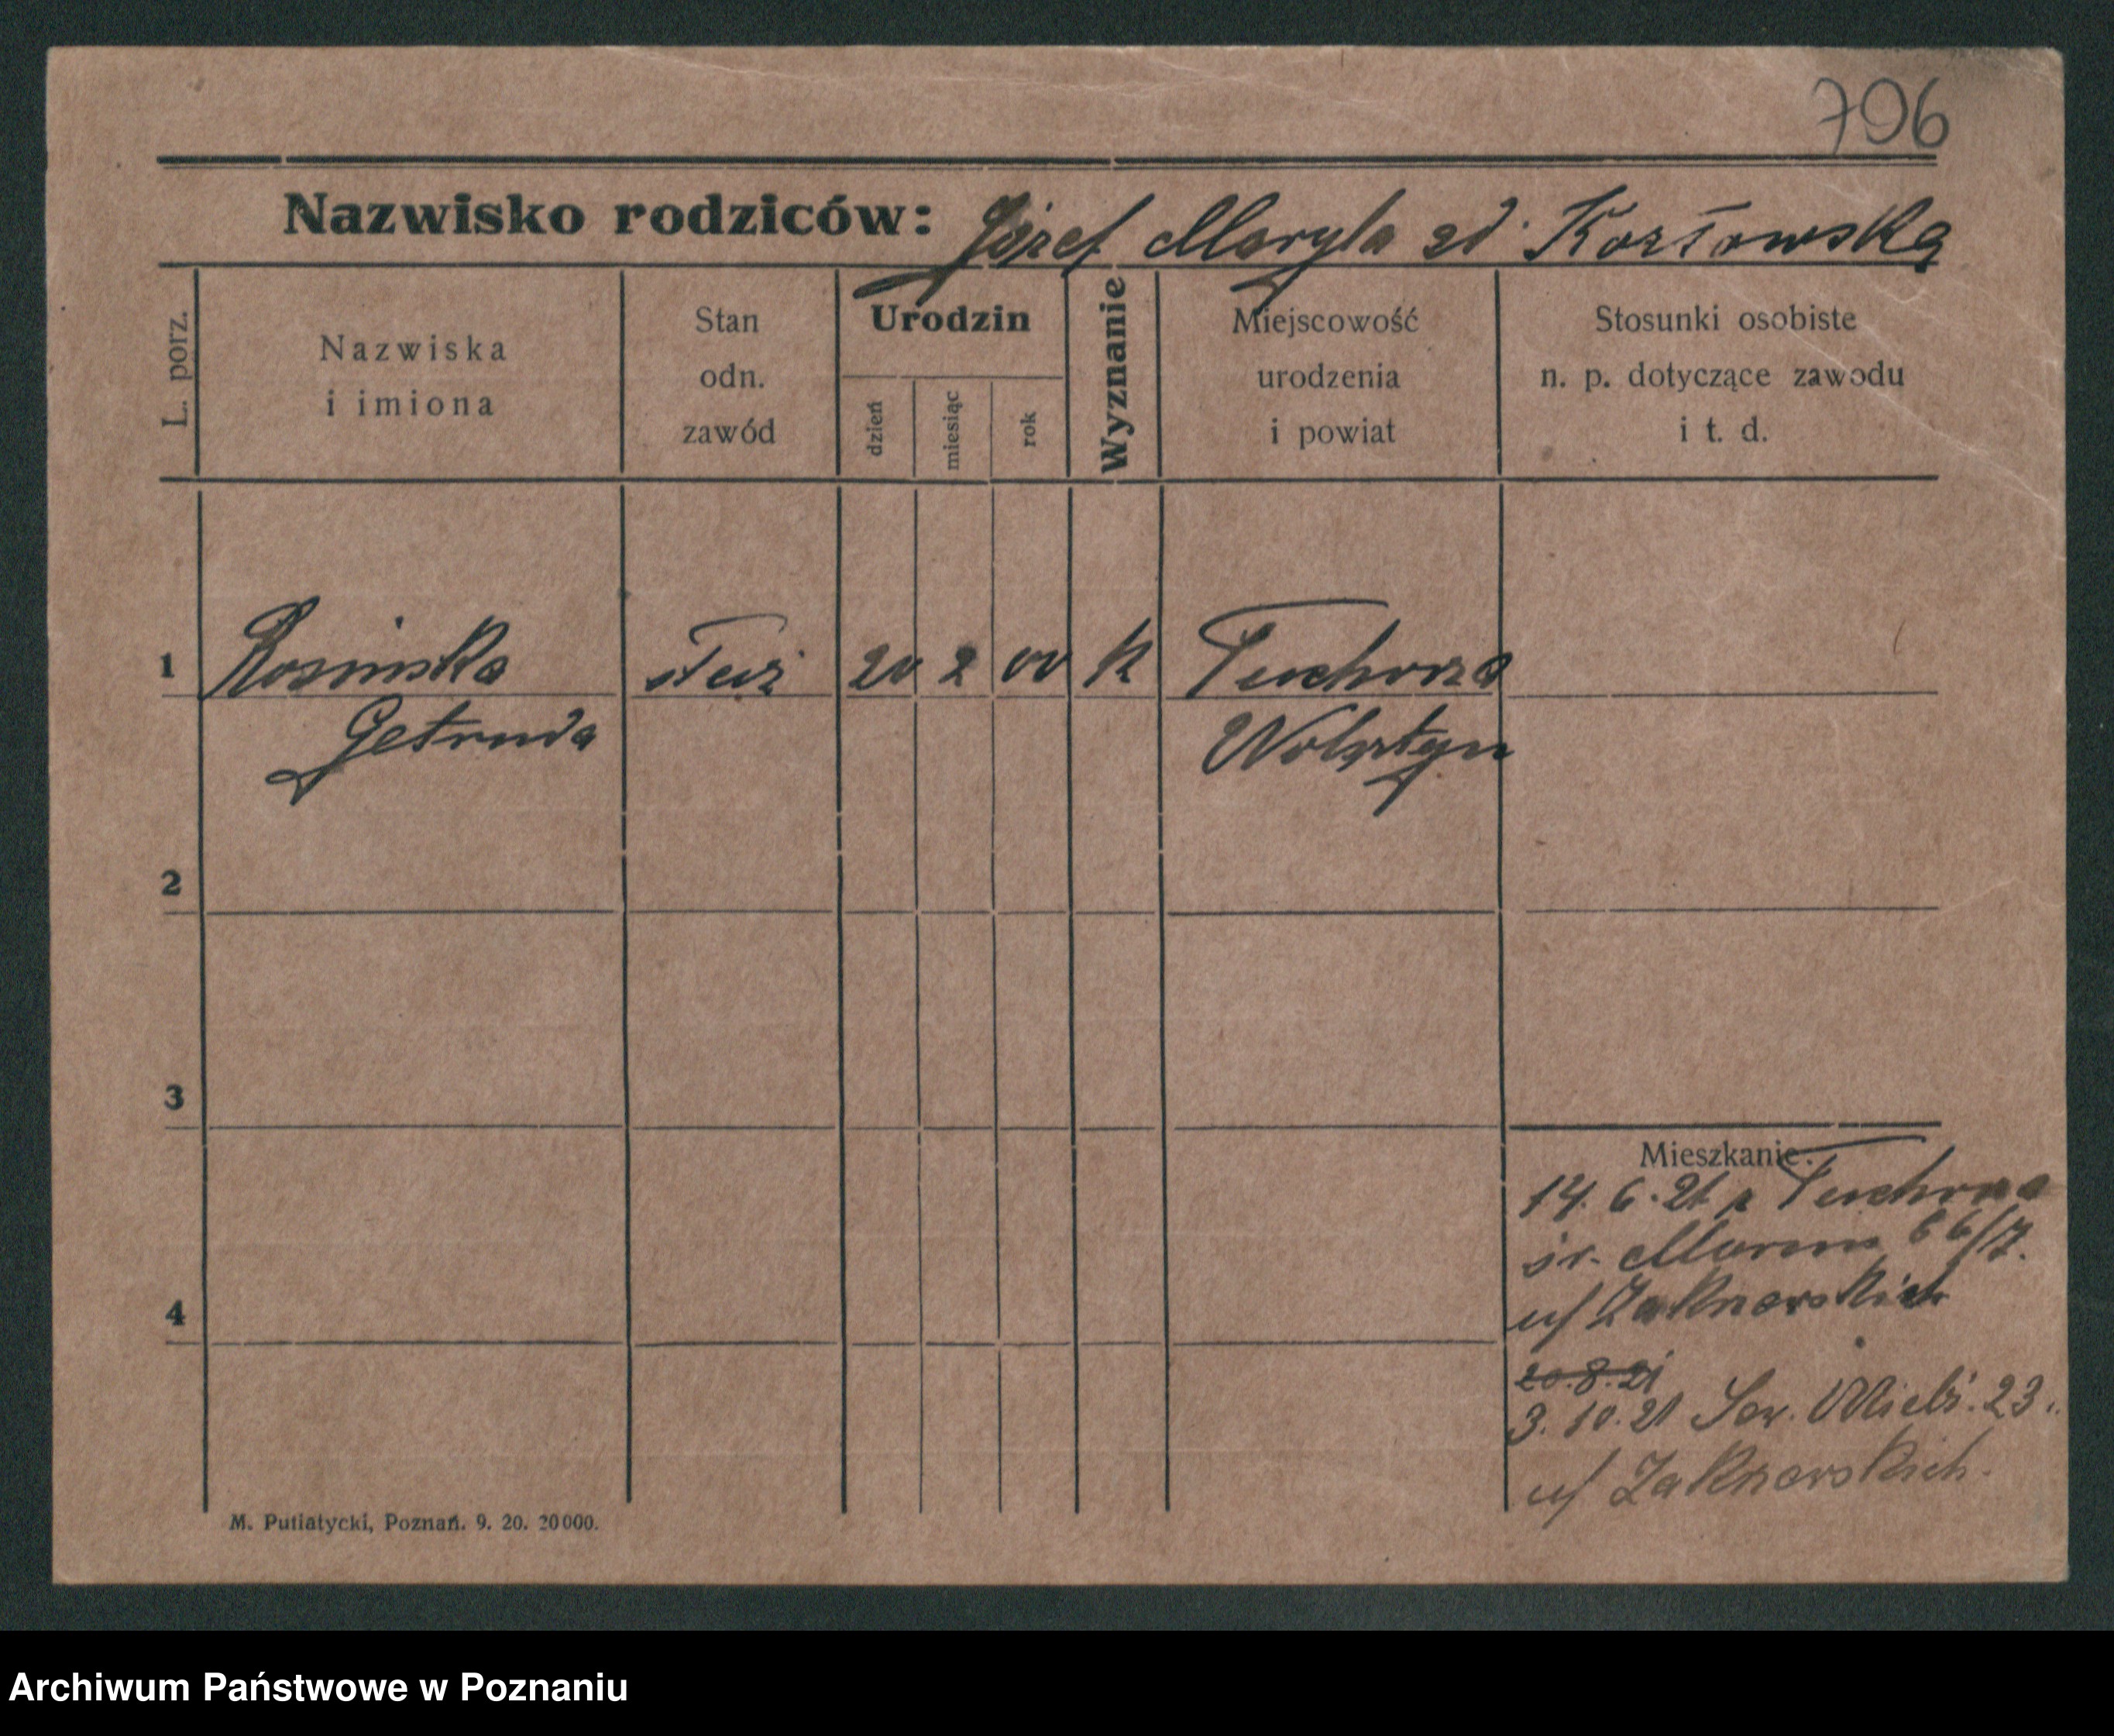 706
Nazwisko rodziców: Józef Maryla zd. Kozłowska
L. porz.
Nazwiska
i imiona
Stan
odn.
zawód
Urodzin
dzień
miesiąc
rok
Wyznanie
Miejscowość
urodzenia
i powiat
Stosunki osobiste
n. p. dotyczące zawodu
i t. d.
1 Rosinska służ 20 2 00 k Tuchorza
Getruda Wolsztyn
2
3
4
Mieszkanie:
14. 6. 21 z Tuchorza
św. Marcin 66/7.
u/
20.8.21
3. 10. 21 23.
u/
M. Putiatycki, Poznań. 9. 20. 20000.
Archiwum Państwowe w Poznaniu